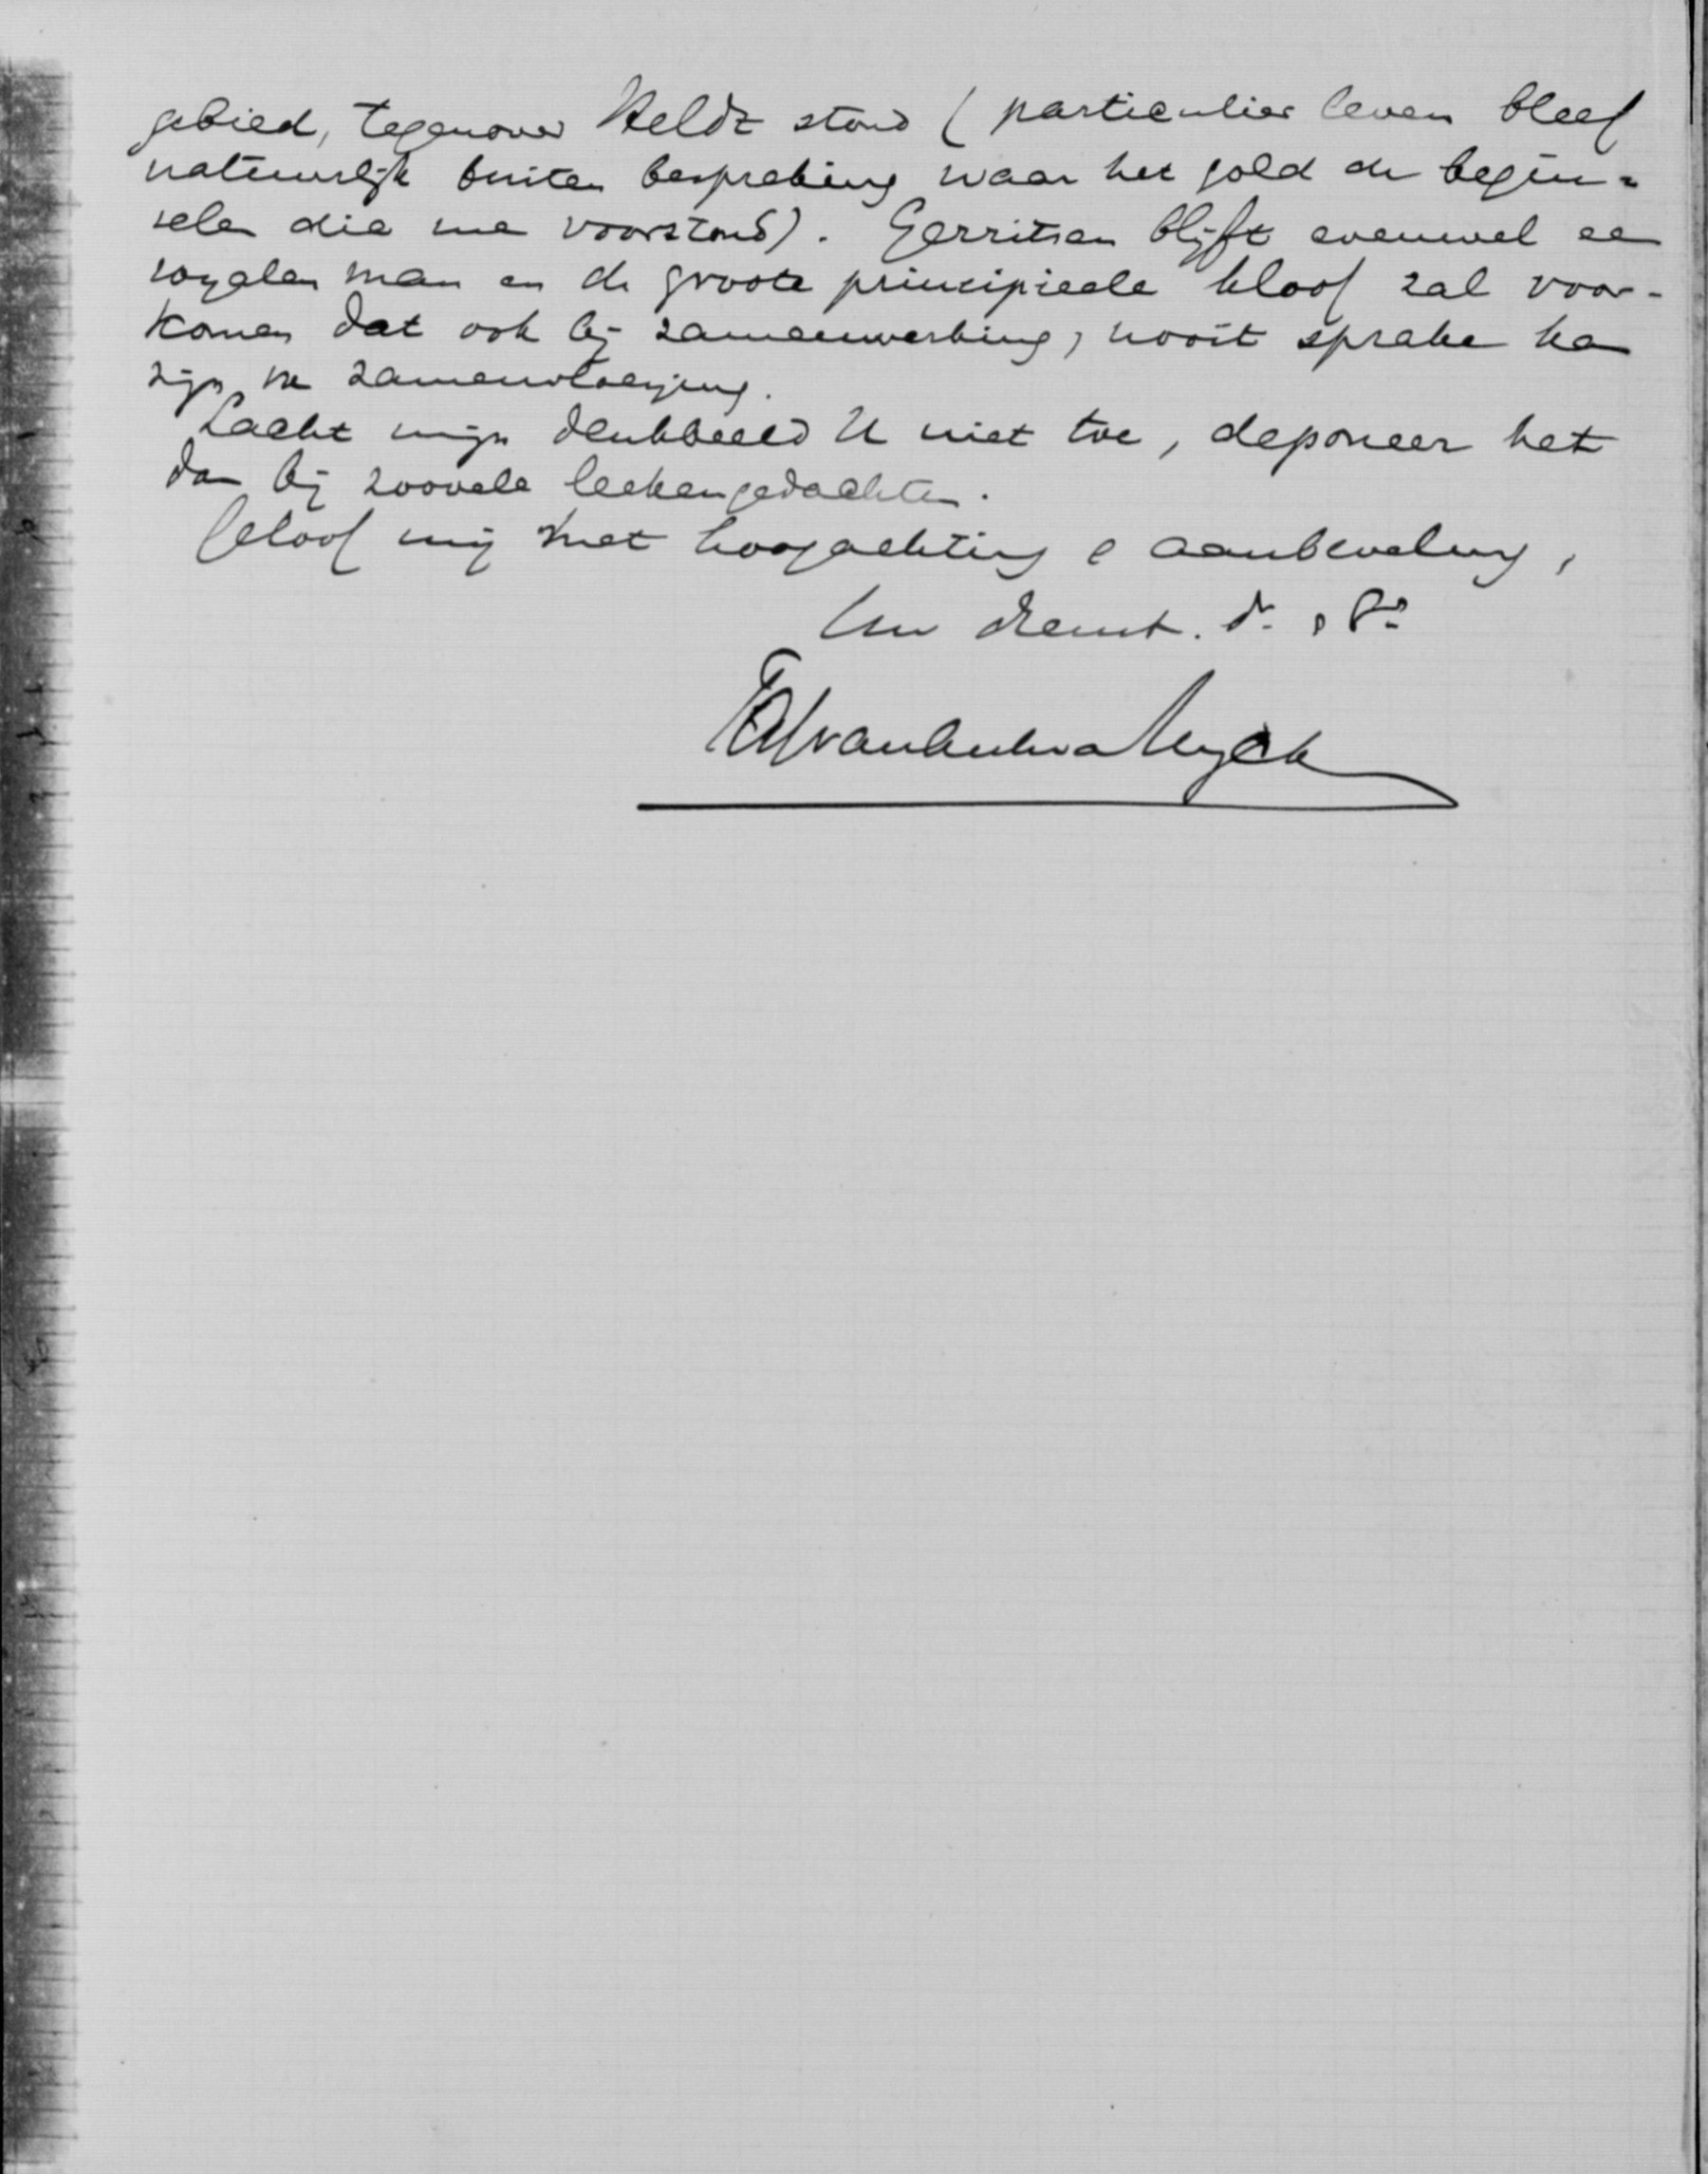 gebied, tegenover Heldt stond (particulier leven bleef
natuurlijk buiten bespreking waar het gold de begin=
selen die me voorstond). Gerritsen blijft evenwel een
loyalen man en de groote principieele kloof zal voor-
komen dat ook bij samenwerking, nooit sprake kan
zijn van samenvloeijing.
Lacht mijn denkbeeld U niet toe, deponeer het
dan bij zoovele leekengedachten.
Geloof mij met hoogachting & aanbeveling,
Uw dienst. dr. &